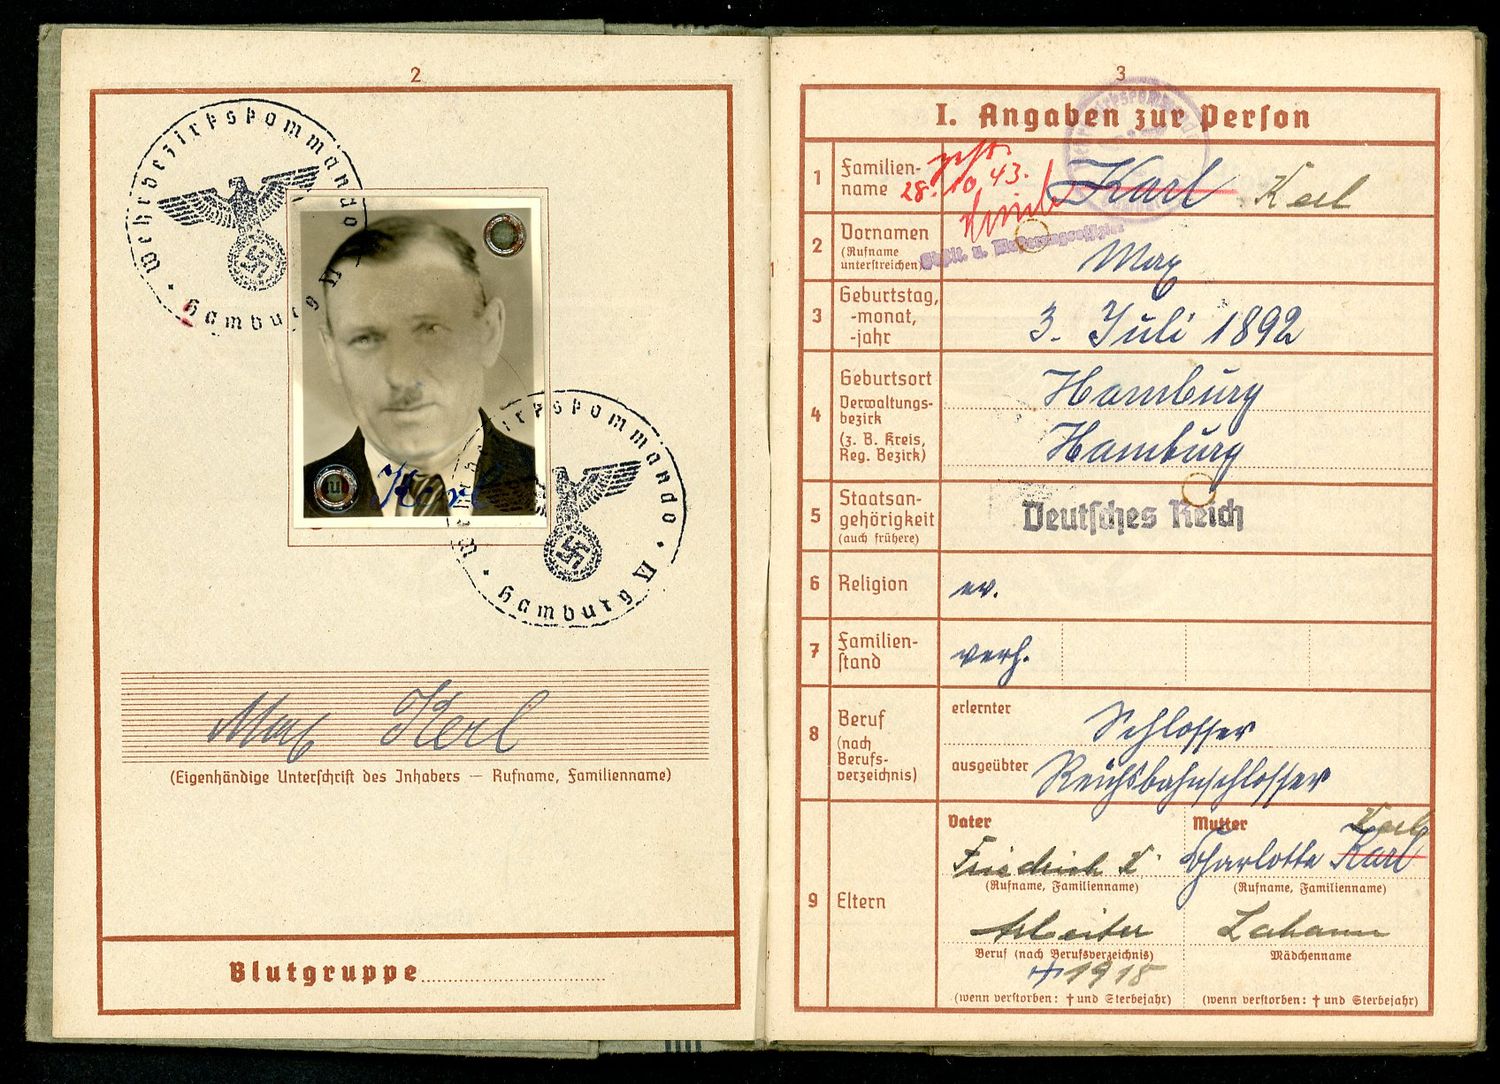 2
Wehrbezirkskommando
Hamburg VI
Kerl
Wehrbezirkskommando
Hamburg VI
Max Kerl
(Eigenhändige Unterschrift des Inhabers — Rufname, Familienname)
Blutgruppe
3
I. Angaben zur Person
1 Familien-
name
28.10.43.
Karl Kerl
2 Vornamen
(Rufname
unterstreichen)
Max
3 Geburtstag,
-monat,
-jahr
3. Juli 1892
4 Geburtsort
Hamburg
Verwaltungs-
bezirk
(z. B. Kreis,
Reg. Bezirk)
Hamburg
5 Staatsan-
gehörigkeit
(auch frühere)
Deutsches Reich
6 Religion
ev.
7 Familien-
stand
verh.
8 Beruf
(nach
Berufs-
verzeichnis)
erlernter Schlosser
ausgeübter Reichsbahnschlosser
9 Eltern
Vater
Friedrich K.
(Rufname, Familienname)
Arbeiter
Beruf (nach Berufsverzeichnis)
+ 1918
(wenn verstorben: † und Sterbejahr)
Mutter
Kerl
Charlotte Karl
(Rufname, Familienname)
Lahann
Mädchenname
(wenn verstorben: † und Sterbejahr)